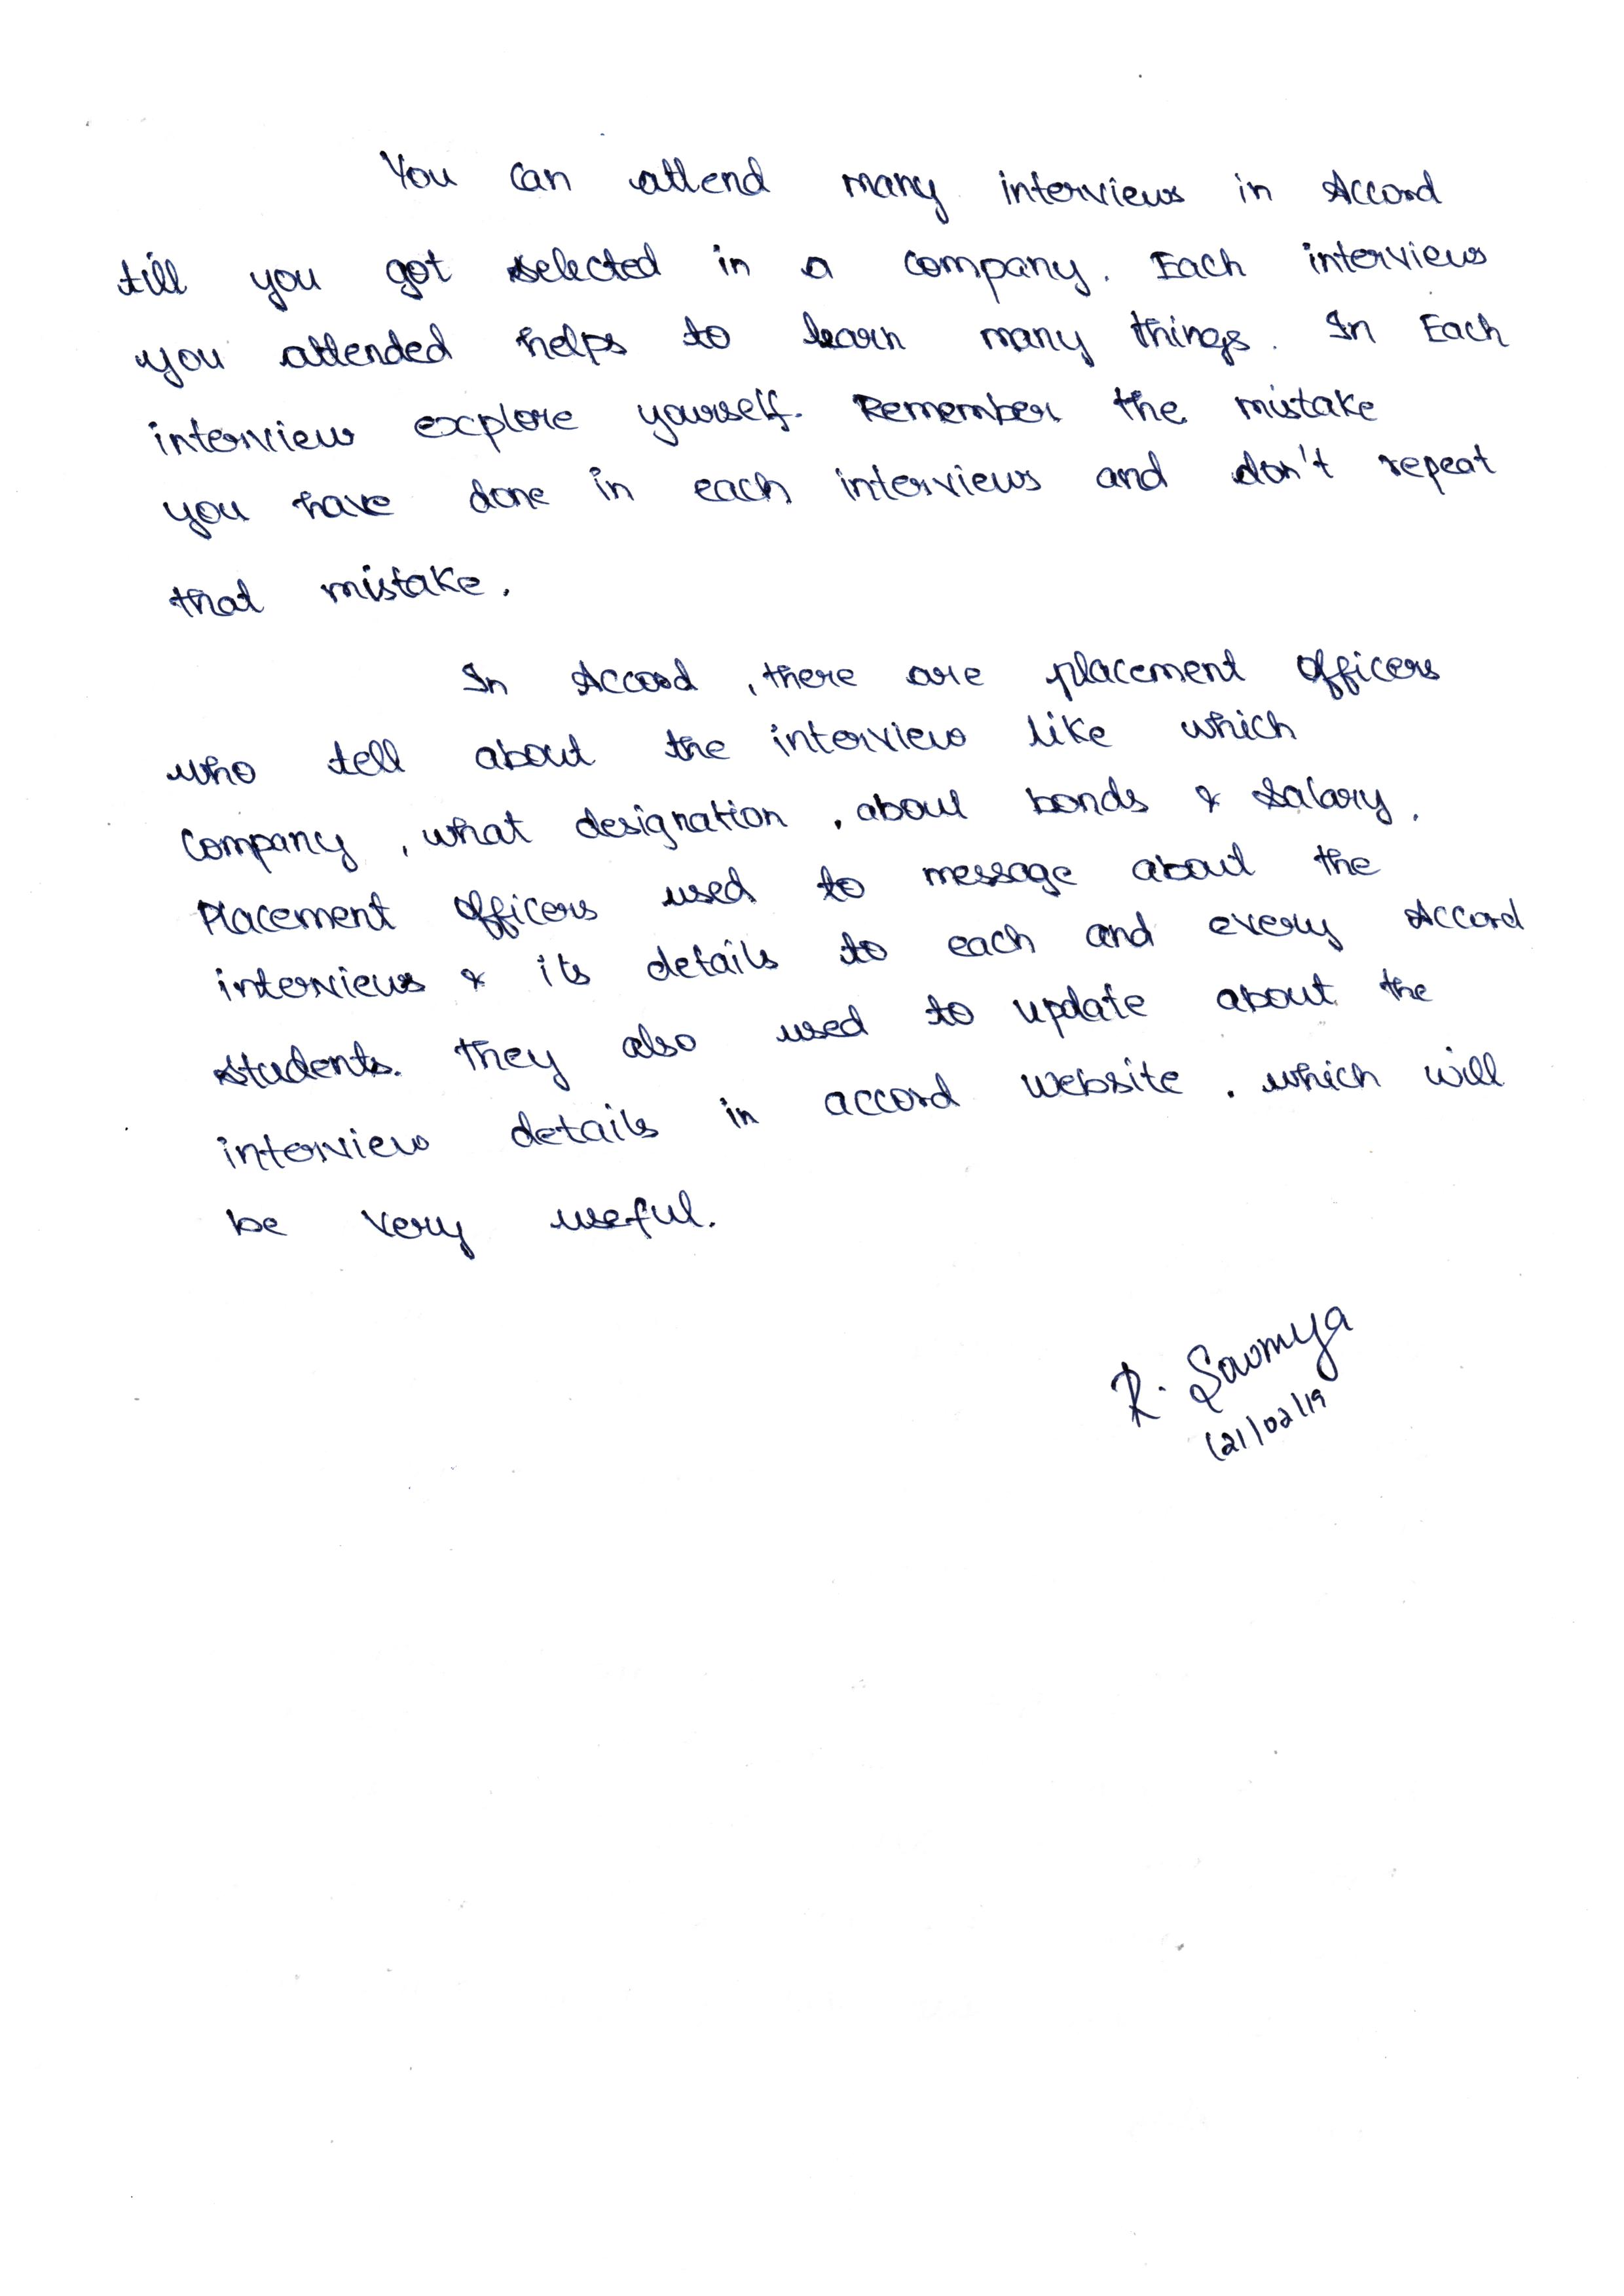 You can attend many interviews in Accord
till you got selected in a company. Each interviews
you attended helps to learn many things. In Each
interview explore yourself. Remember the mistake
you have done in each interviews and don't repeat
that mistake.
In Accord, there are placement officers
who tell about the interview like which
company, what designation, about bonds & Salary.
Placement officers used to message about the
interviews & its details to each and every Accord
students. They also used to update about the
interview details in accord website, which will
be very useful.
R. Sowmya
(21/02/19